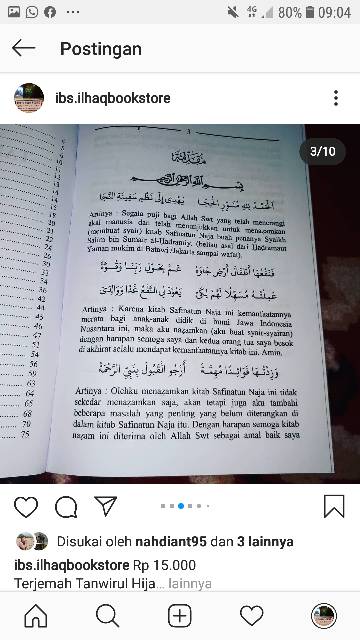 4G 80% 09:04
Postingan
ibs.ilhaqbookstore
3/10
3
مقدمة
بسم الله الرحمن الرحيم
الحمد لله منور الحجا يهدي إلى نظم سفينة النجا
Artinya : Segala puji bagi Allah Swt yang telah menerangi
akal manusia dan telah menunjukkan untuk menazamkan
(membuat syair) kitab Safinatun Naja buah penanya Syaikh
Salim bin Sumair al-Hadramiy, (beliau asal dari Hadramaut
Yaman mukim di Batawi /Jakarta sampai wafat).
فنفعها أطفال أرض جاوة عم بحول ربنا وقوة
عملته مسهلا لهم لكي يعود لي النفع غدا ووالدي
Artinya : Karena kitab Safinatun Naja ini kemanfaatannya
merata bagi anak-anak didik di bumi Jawa Indonesia
Nusantara ini, maka aku nazamkan (aku buat syair-syairan)
dengan harapan semoga saya dan kedua orang tua saya besok
di akhirat selalu mendapat kemanfaatannya kitab ini. Amin.
وزدتها فوائدا مهمة أرجو القبول بنبي الرحمة
Artinya : Olehku menazamkan kitab Safinatun Naja ini tidak
sekedar menazamkan saja, akan tetapi juga aku tambahi
beberapa masalah yang penting yang belum diterangkan di
dalam kitab Safinatun Naja itu. Dengan harapan semoga kitab
nazam ini diterima oleh Allah Swt sebagai amal baik saya
Disukai oleh nahdiant95 dan 3 lainnya
ibs.ilhaqbookstore Rp 15.000
Terjemah Tanwirul Hija... lainnya